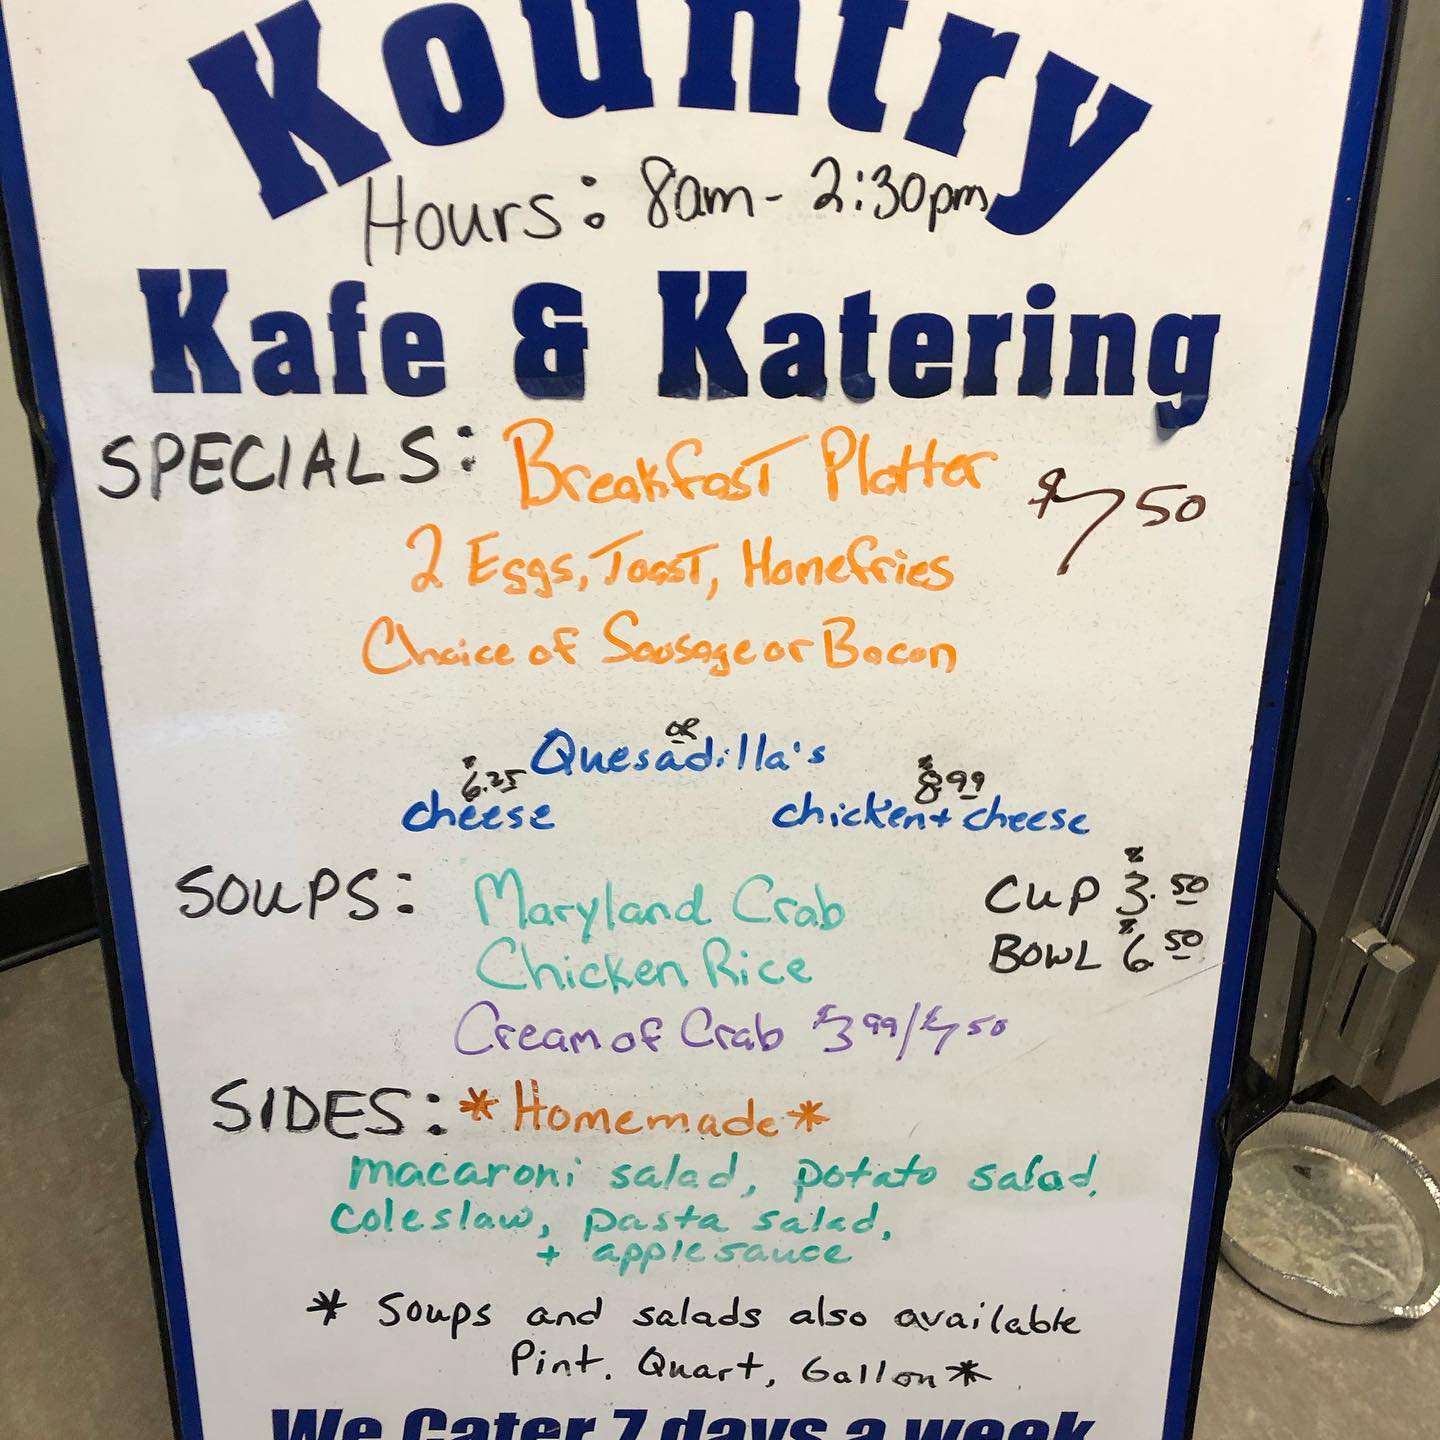 Kountry
Hours: 8am - 2:30pm
Kafe & Katering
SPECIALS: Breakfast Platter $7 50
2 Eggs, Toast, Homefries
Choice of Sausage or Bacon
or
Quesadilla's
$6.25 $8 99
cheese chicken + cheese
SOUPS: Maryland Crab CUP $3.50
Chicken Rice BOWL $6 50
Cream of Crab $3 99/$7 50
SIDES: * Homemade *
macaroni salad, potato salad,
coleslaw, pasta salad,
+ applesauce
* Soups and salads also available
Pint, Quart, Gallon *
We Cater 7 days a week